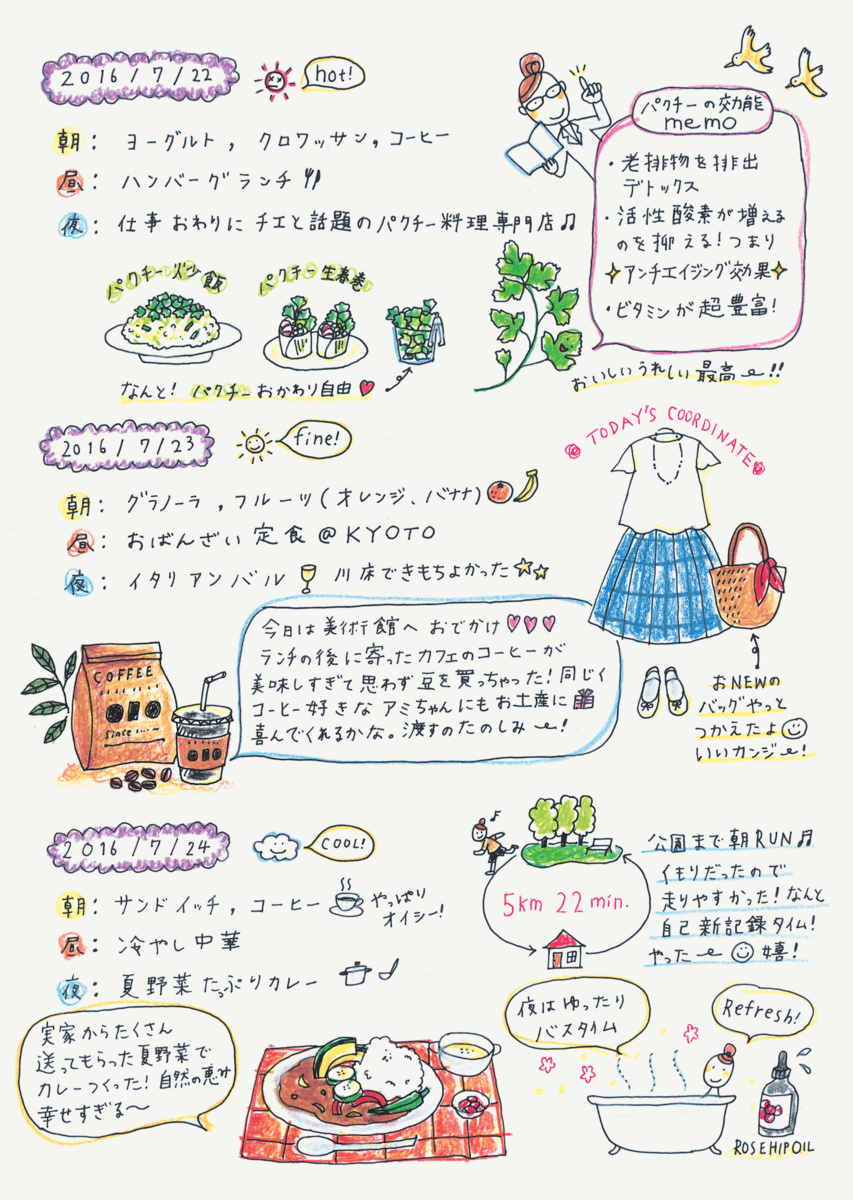 2016/7/22
hot!
朝: ヨーグルト, クロワッサン, コーヒー
昼: ハンバーグランチ
夜: 仕事おわりにチエと話題のパクチー料理専門店♫
パクチー炒飯
パクチー生春巻
なんと! パクチーおかわり自由♥
パクチーの効能
memo
・老排物を排出
デトックス
・活性酸素が増える
のを抑える! つまり
✧アンチエイジング効果✧
・ビタミンが超豊富!
おいしいうれしい最高〜!!
2016/7/23
fine!
朝: グラノーラ, フルーツ(オレンジ、バナナ)
昼: おばんざい定食@KYOTO
夜: イタリアンバル 川床できもちよかった
TODAY'S COORDINATE
おNEWの
バッグやっと
つかえたよ
いいカンジ〜!
今日は美術館へおでかけ♡♡♡
ランチの後に寄ったカフェのコーヒーが
美味しすぎて思わず豆を買っちゃった! 同じく
コーヒー好きなアミちゃんにもお土産に
喜んでくれるかな。渡すのたのしみ〜!
COFFEE
Since
2016/7/24
COOL!
朝: サンドイッチ, コーヒー
やっぱり
オイシー!
昼: 冷やし中華
夜: 夏野菜たっぷりカレー
5km 22min.
公園まで朝RUN♫
くもりだったので
走りやすかった! なんと
自己新記録タイム!
やった〜 嬉!
実家からたくさん
送ってもらった夏野菜で
カレーつくった! 自然の恵み
幸せすぎる〜
夜はゆったり
バスタイム
Refresh!
ROSEHIP OIL